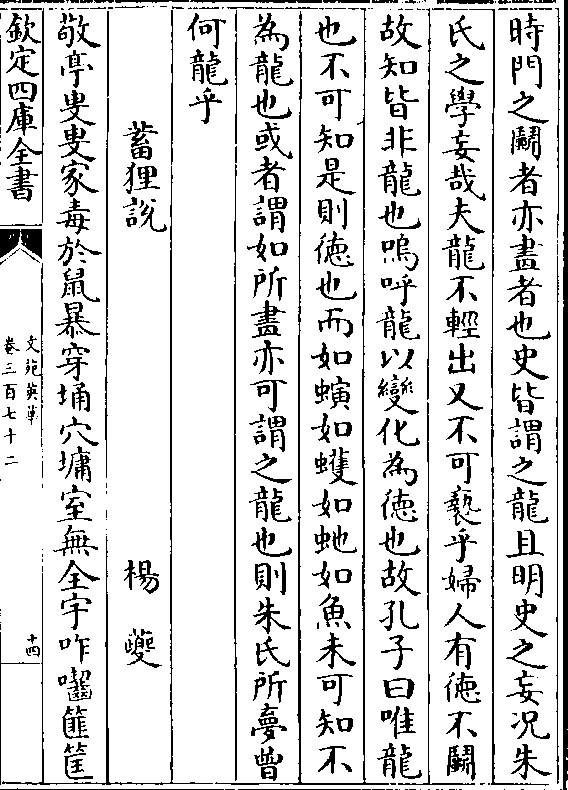 時門之鬭者亦畫者也史皆謂之龍且明史之妄况朱
氏之學妄哉夫龍不輕出又不可褻乎婦人有徳不鬭
故知皆非龍也嗚呼龍以變化為徳也故孔子曰唯龍
也不可知是則徳也而如螾如蠖如虵如魚未可知不
為龍也或者謂如所畫亦可謂之龍也則朱氏所夢曾
何龍乎
蓄狸說
楊夔
敬亭叟叟家毒於鼠暴穿埇穴墉室無全宇咋囓篚筐
欽定四庫全書
文苑英華
卷三百七十二
十四